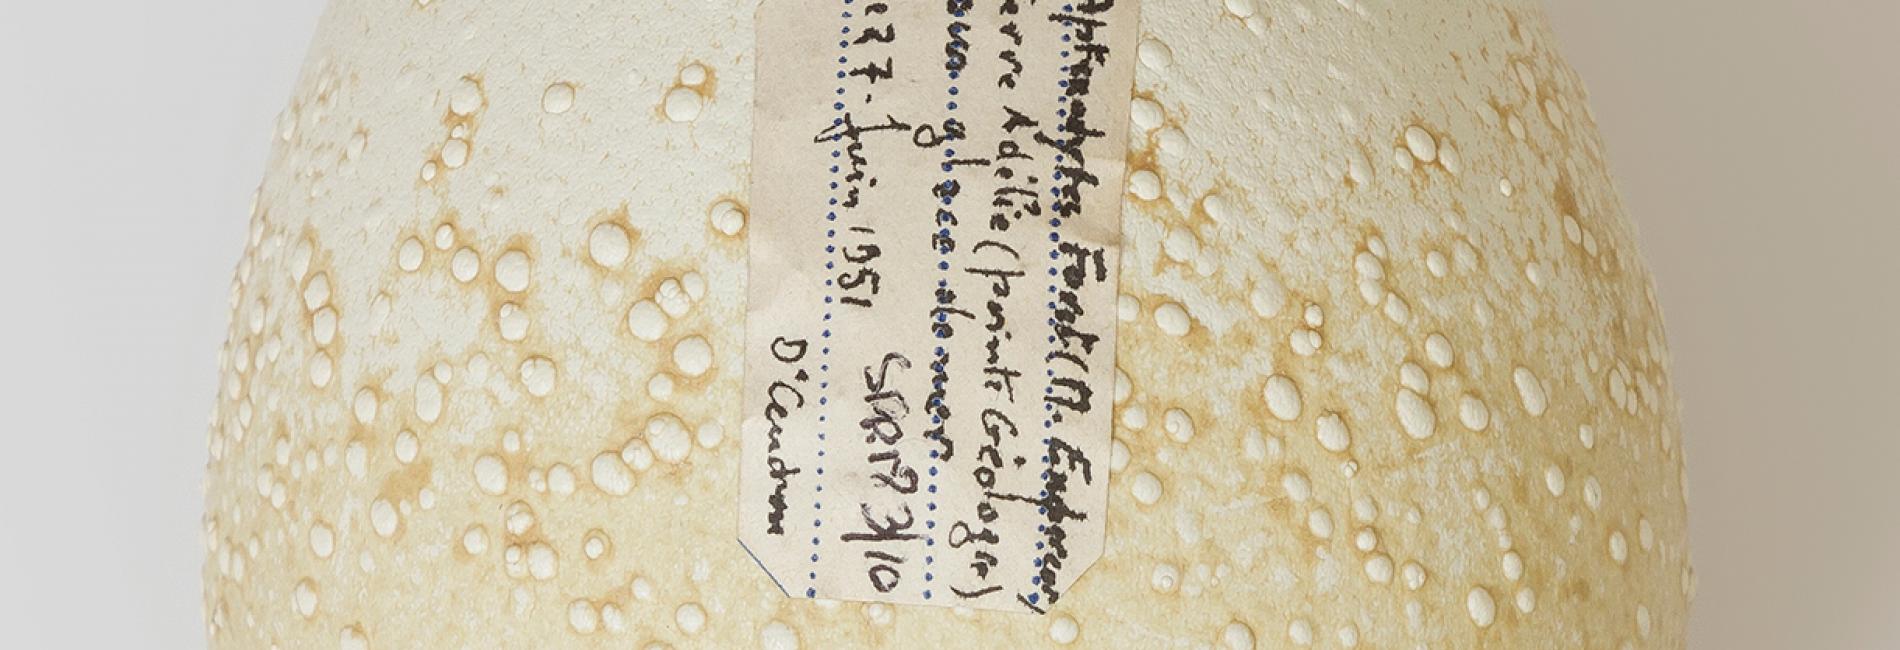 Aptenodytes Forsteri (M. Empereur)
Terre Adélie (pointe Géologie)
sur glace de mer
le 27 Juin 1951 SPR173/10
Dr Cendron